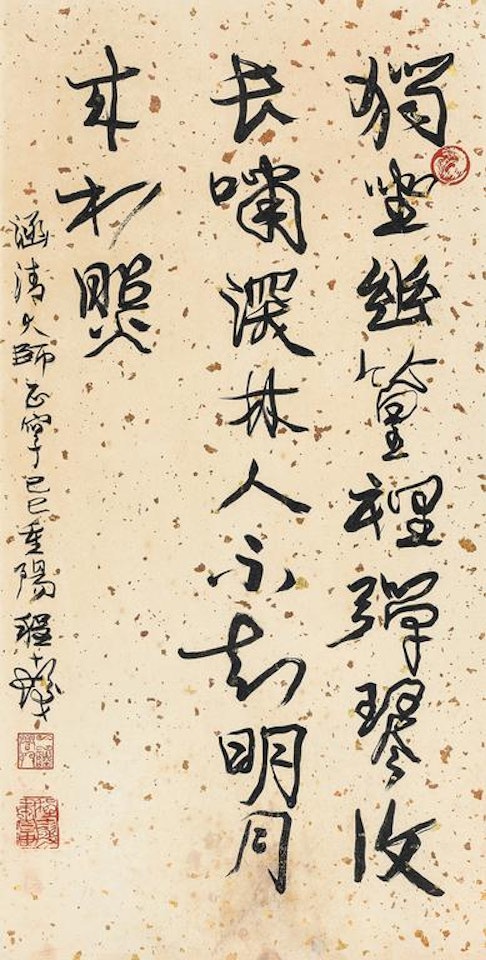 獨坐幽篁裡彈琴復
長嘯深林人不知明月
來相照
涵清大師正字己巳重陽程十髮